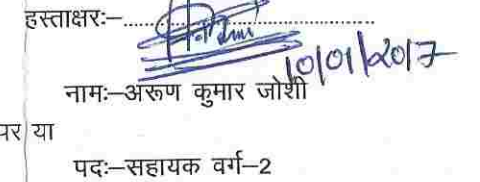 हस्ताक्षरः–........................................
10/01/2017
नामः–अरूण कुमार जोशी
पर या
पदः–सहायक वर्ग–2